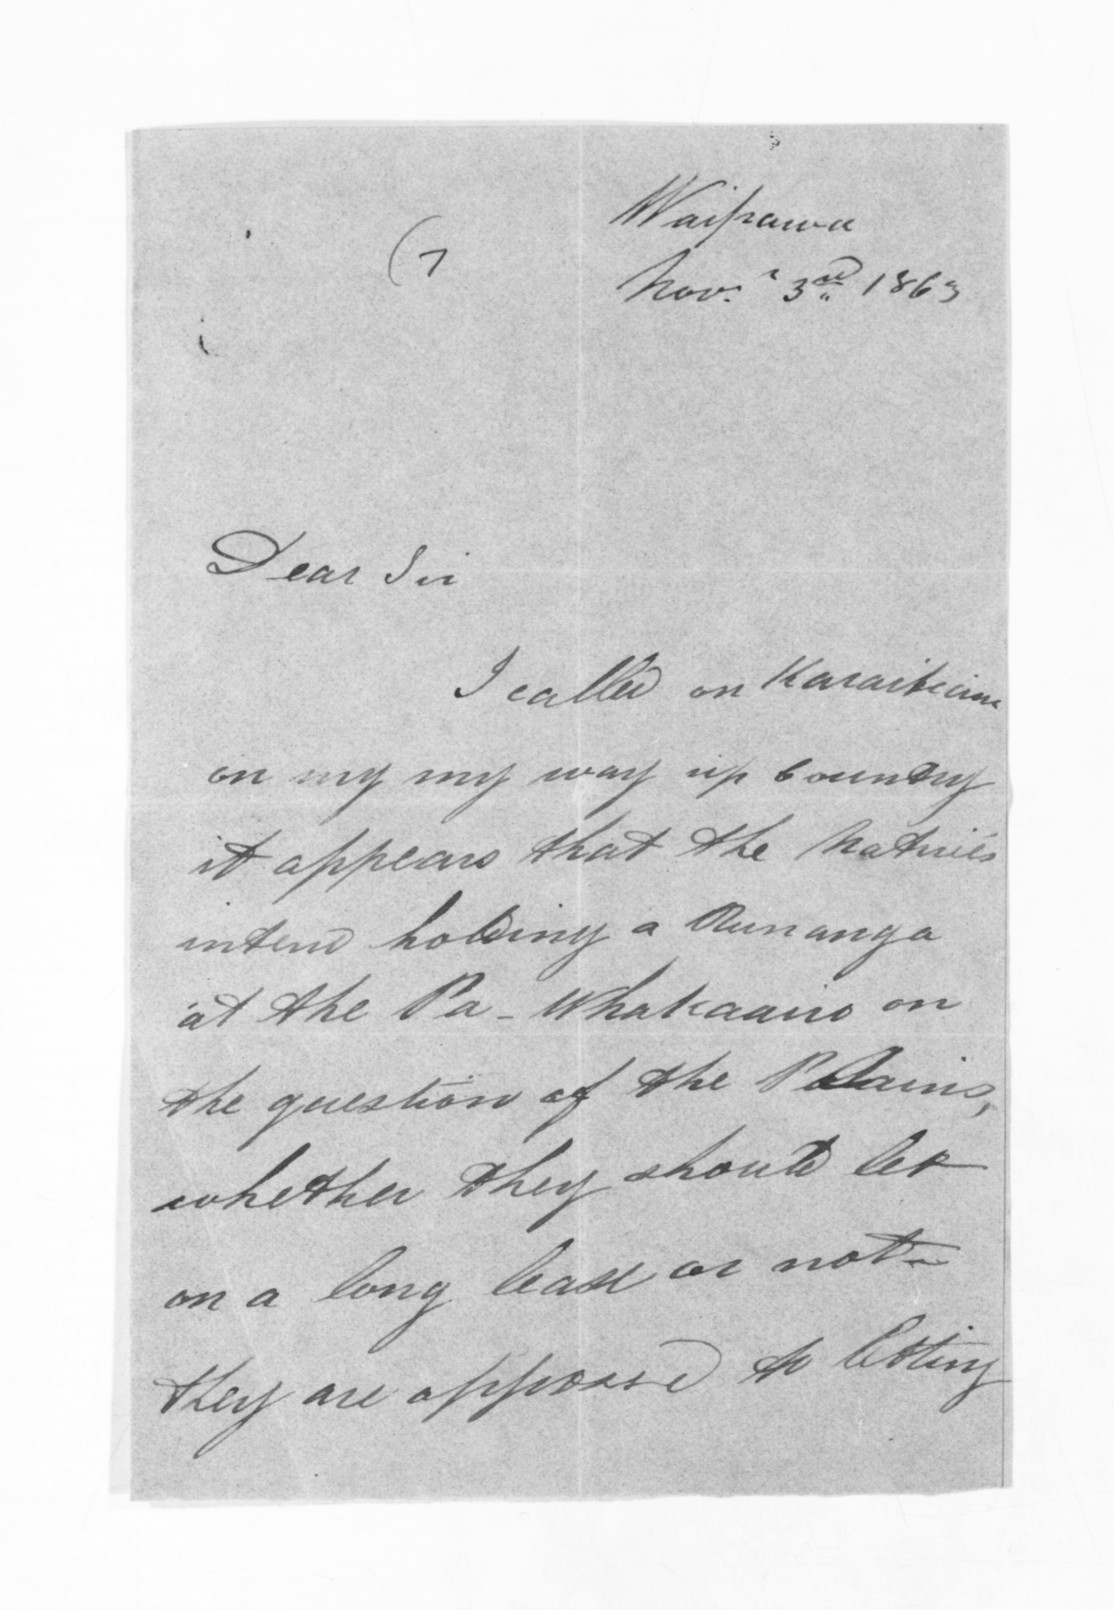 Waipawa
(7
Nov.r 3rd 1863
Dear Sir
I called on Karaitiana
on my my way up country
it appears that the Natives
intend holding a Runanga
at the Pa-Whakaairo on
the question of the Plains,
whether they should let
on a long lease or not -
they are opposed to letting